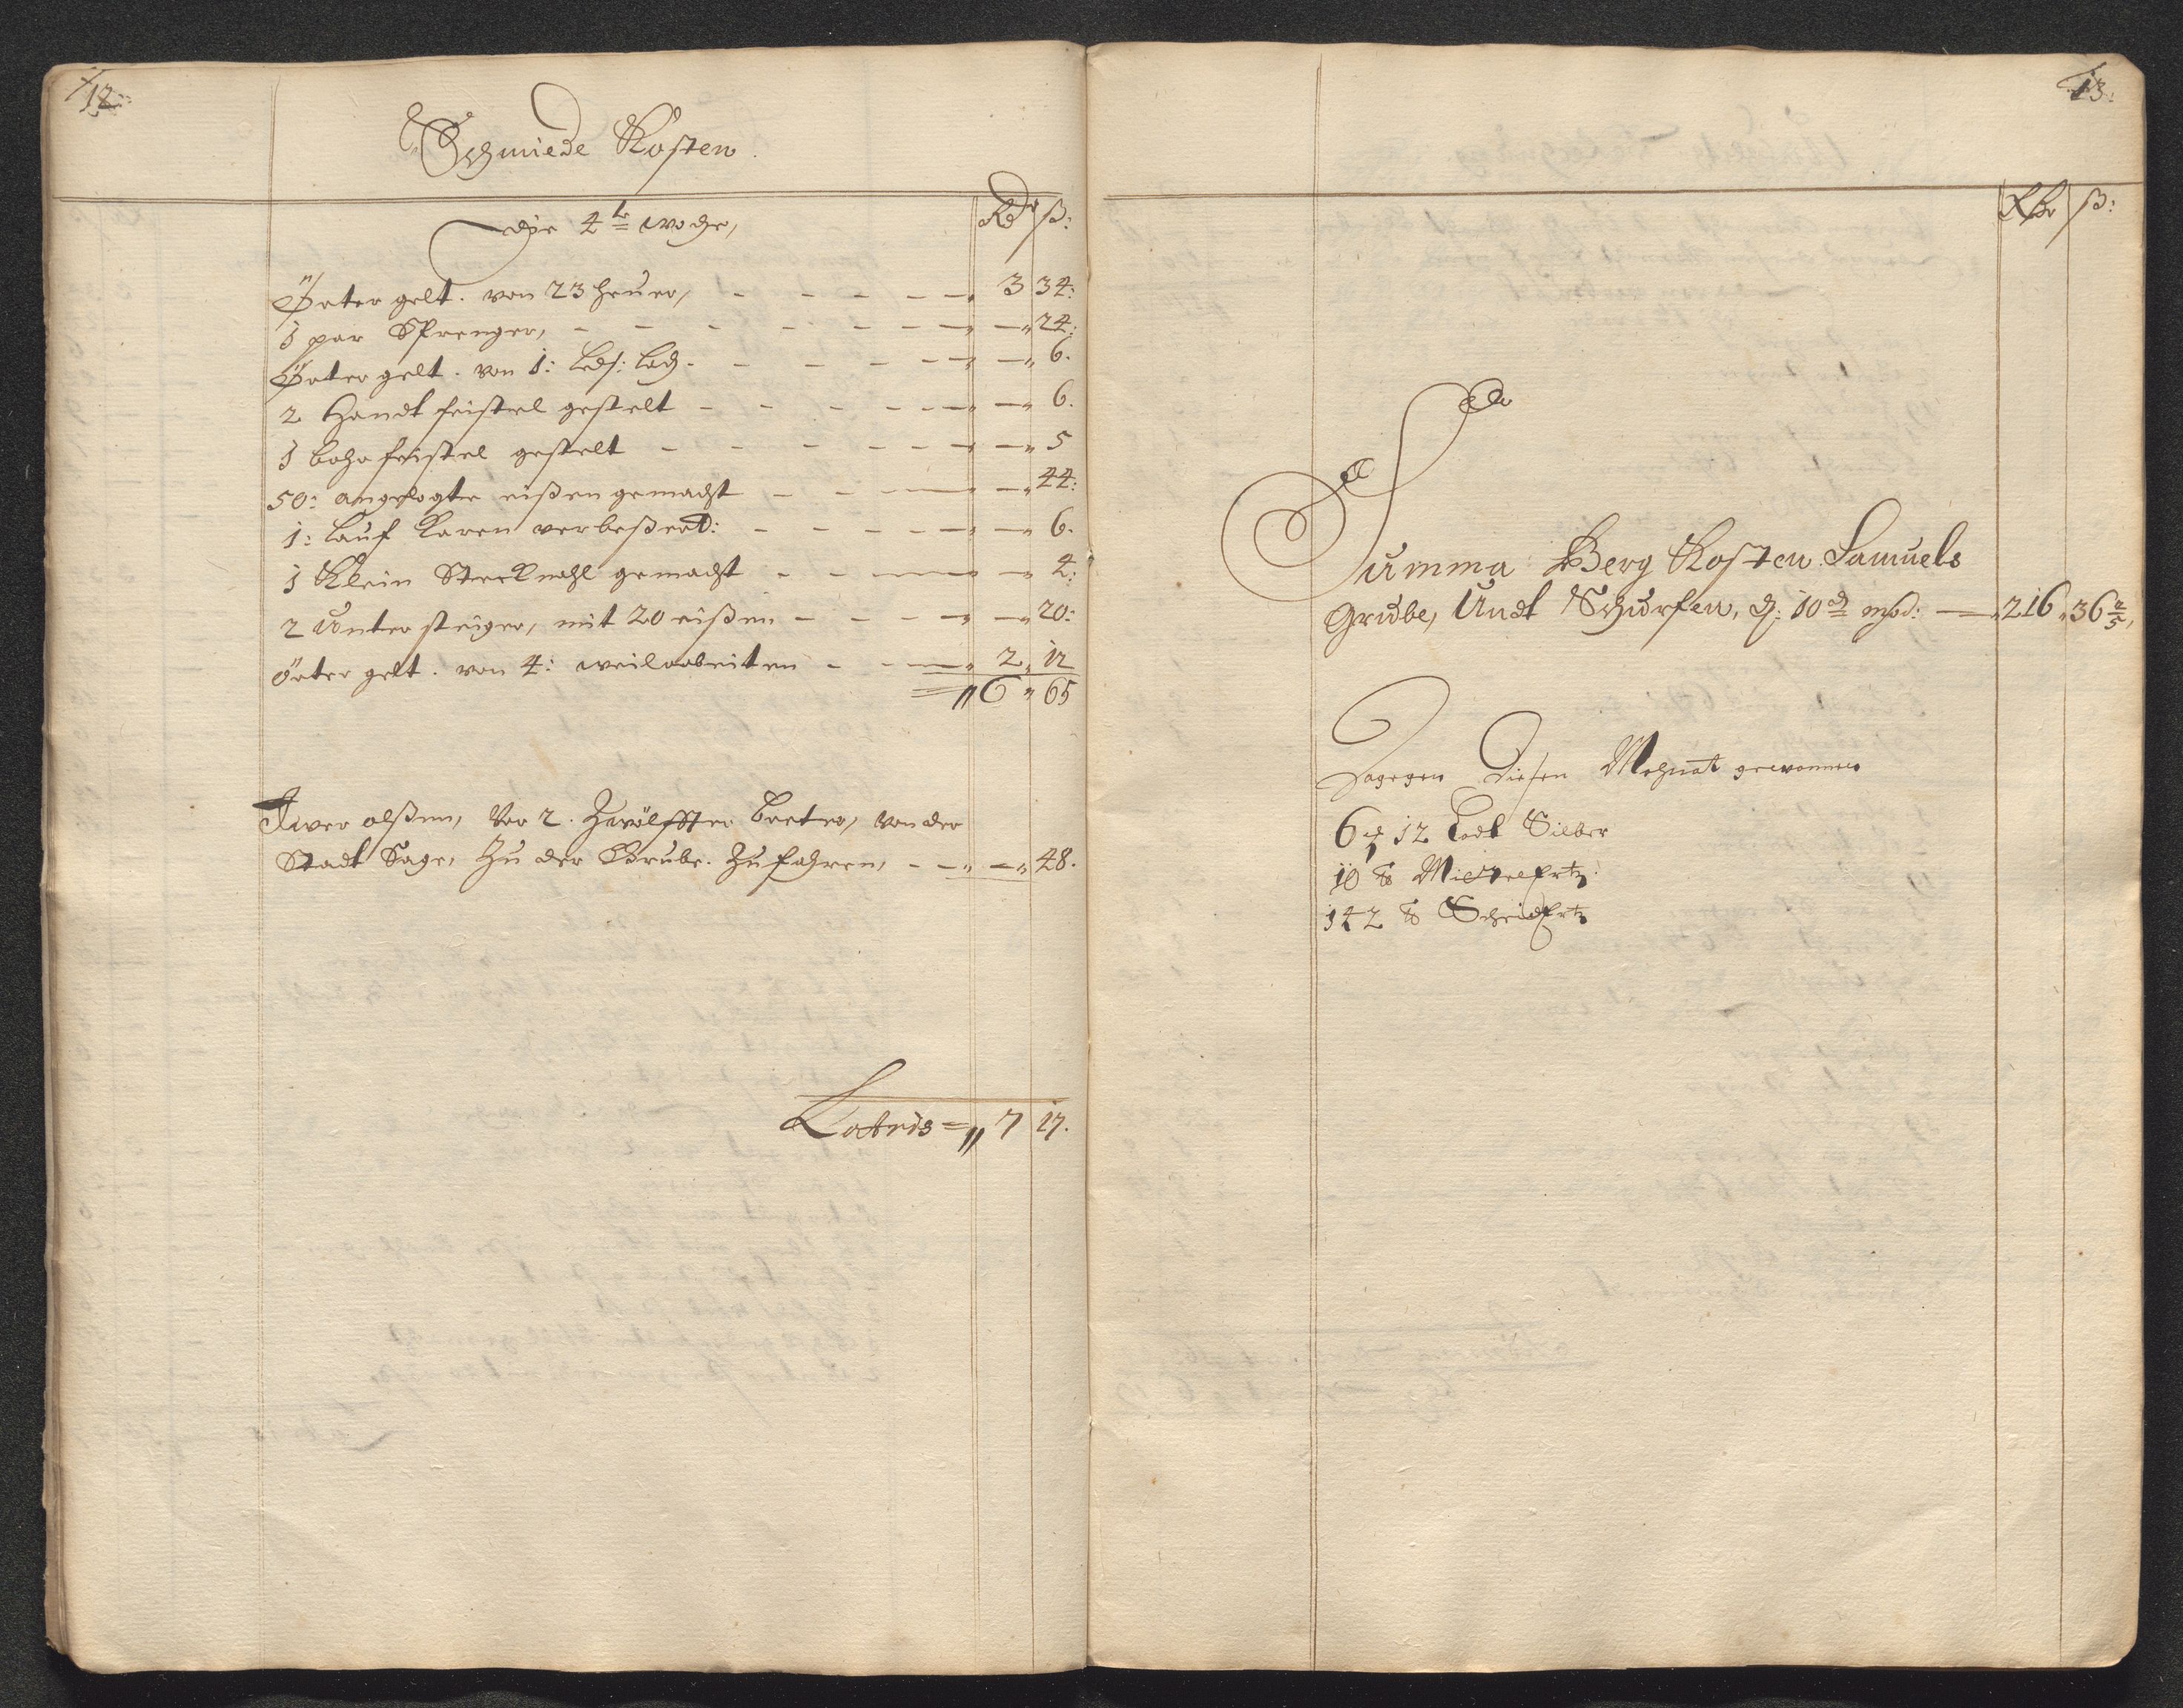 12
Schmiede Kosten.
Die 4te woche,
Rdr ß:
Örter gelt. von 23 heuer, - - - - - 3 34:
1 par Sprenger, - - - - - - - 24:
Örter gelt. von 1: Leds: Loch. - - - - - 6.
2 Handt feistel gestelt - - - - - 6.
1 bohr feistel gestelt - - - - - 5
50: angelegte eißen gemacht - - - - 44:
1: Lauf Karen verbeßert: - - - - - 6.
1 Klein Stecknahl gemacht - - - - 4:
2 Unter steiger, mit 20 eißen - - - - 20:
örter gelt. von 4: weilarbeiten - - - 2, 12
6 „ 65
Iver olßen, Vor 2. Zwölffter breter, von der
Stadt Sage, Zu der Grube. Zu fahren, - - - 48.
Lateris = „ 7 17.
13.
Rdr ß:
Summa Berg Kosten Samuels
Grube, Undt Schurfen, d: 10d mod: — 216 „ 36 2/5,
Dagegen diesen Mohnat gewonnen
6 12 Lodt Silber
10 ℔ Mittelertz
142 ℔ Scheidertz